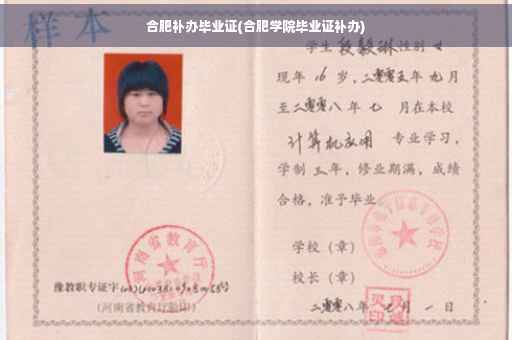 合肥补办毕业证(合肥学院毕业证补办)
样本
学生 段毅琳 性别 女
现年 16 岁，二零零五年 九 月
至二零零八年 七 月在本校
计算机应用 专业学习，
学制 三 年，修业期满，成绩
合格，准予毕业
学校（章）
校长（章）
二零零八年 七 月 一 日
河南省教育厅
豫教职专证字
(河南省教育厅验印)